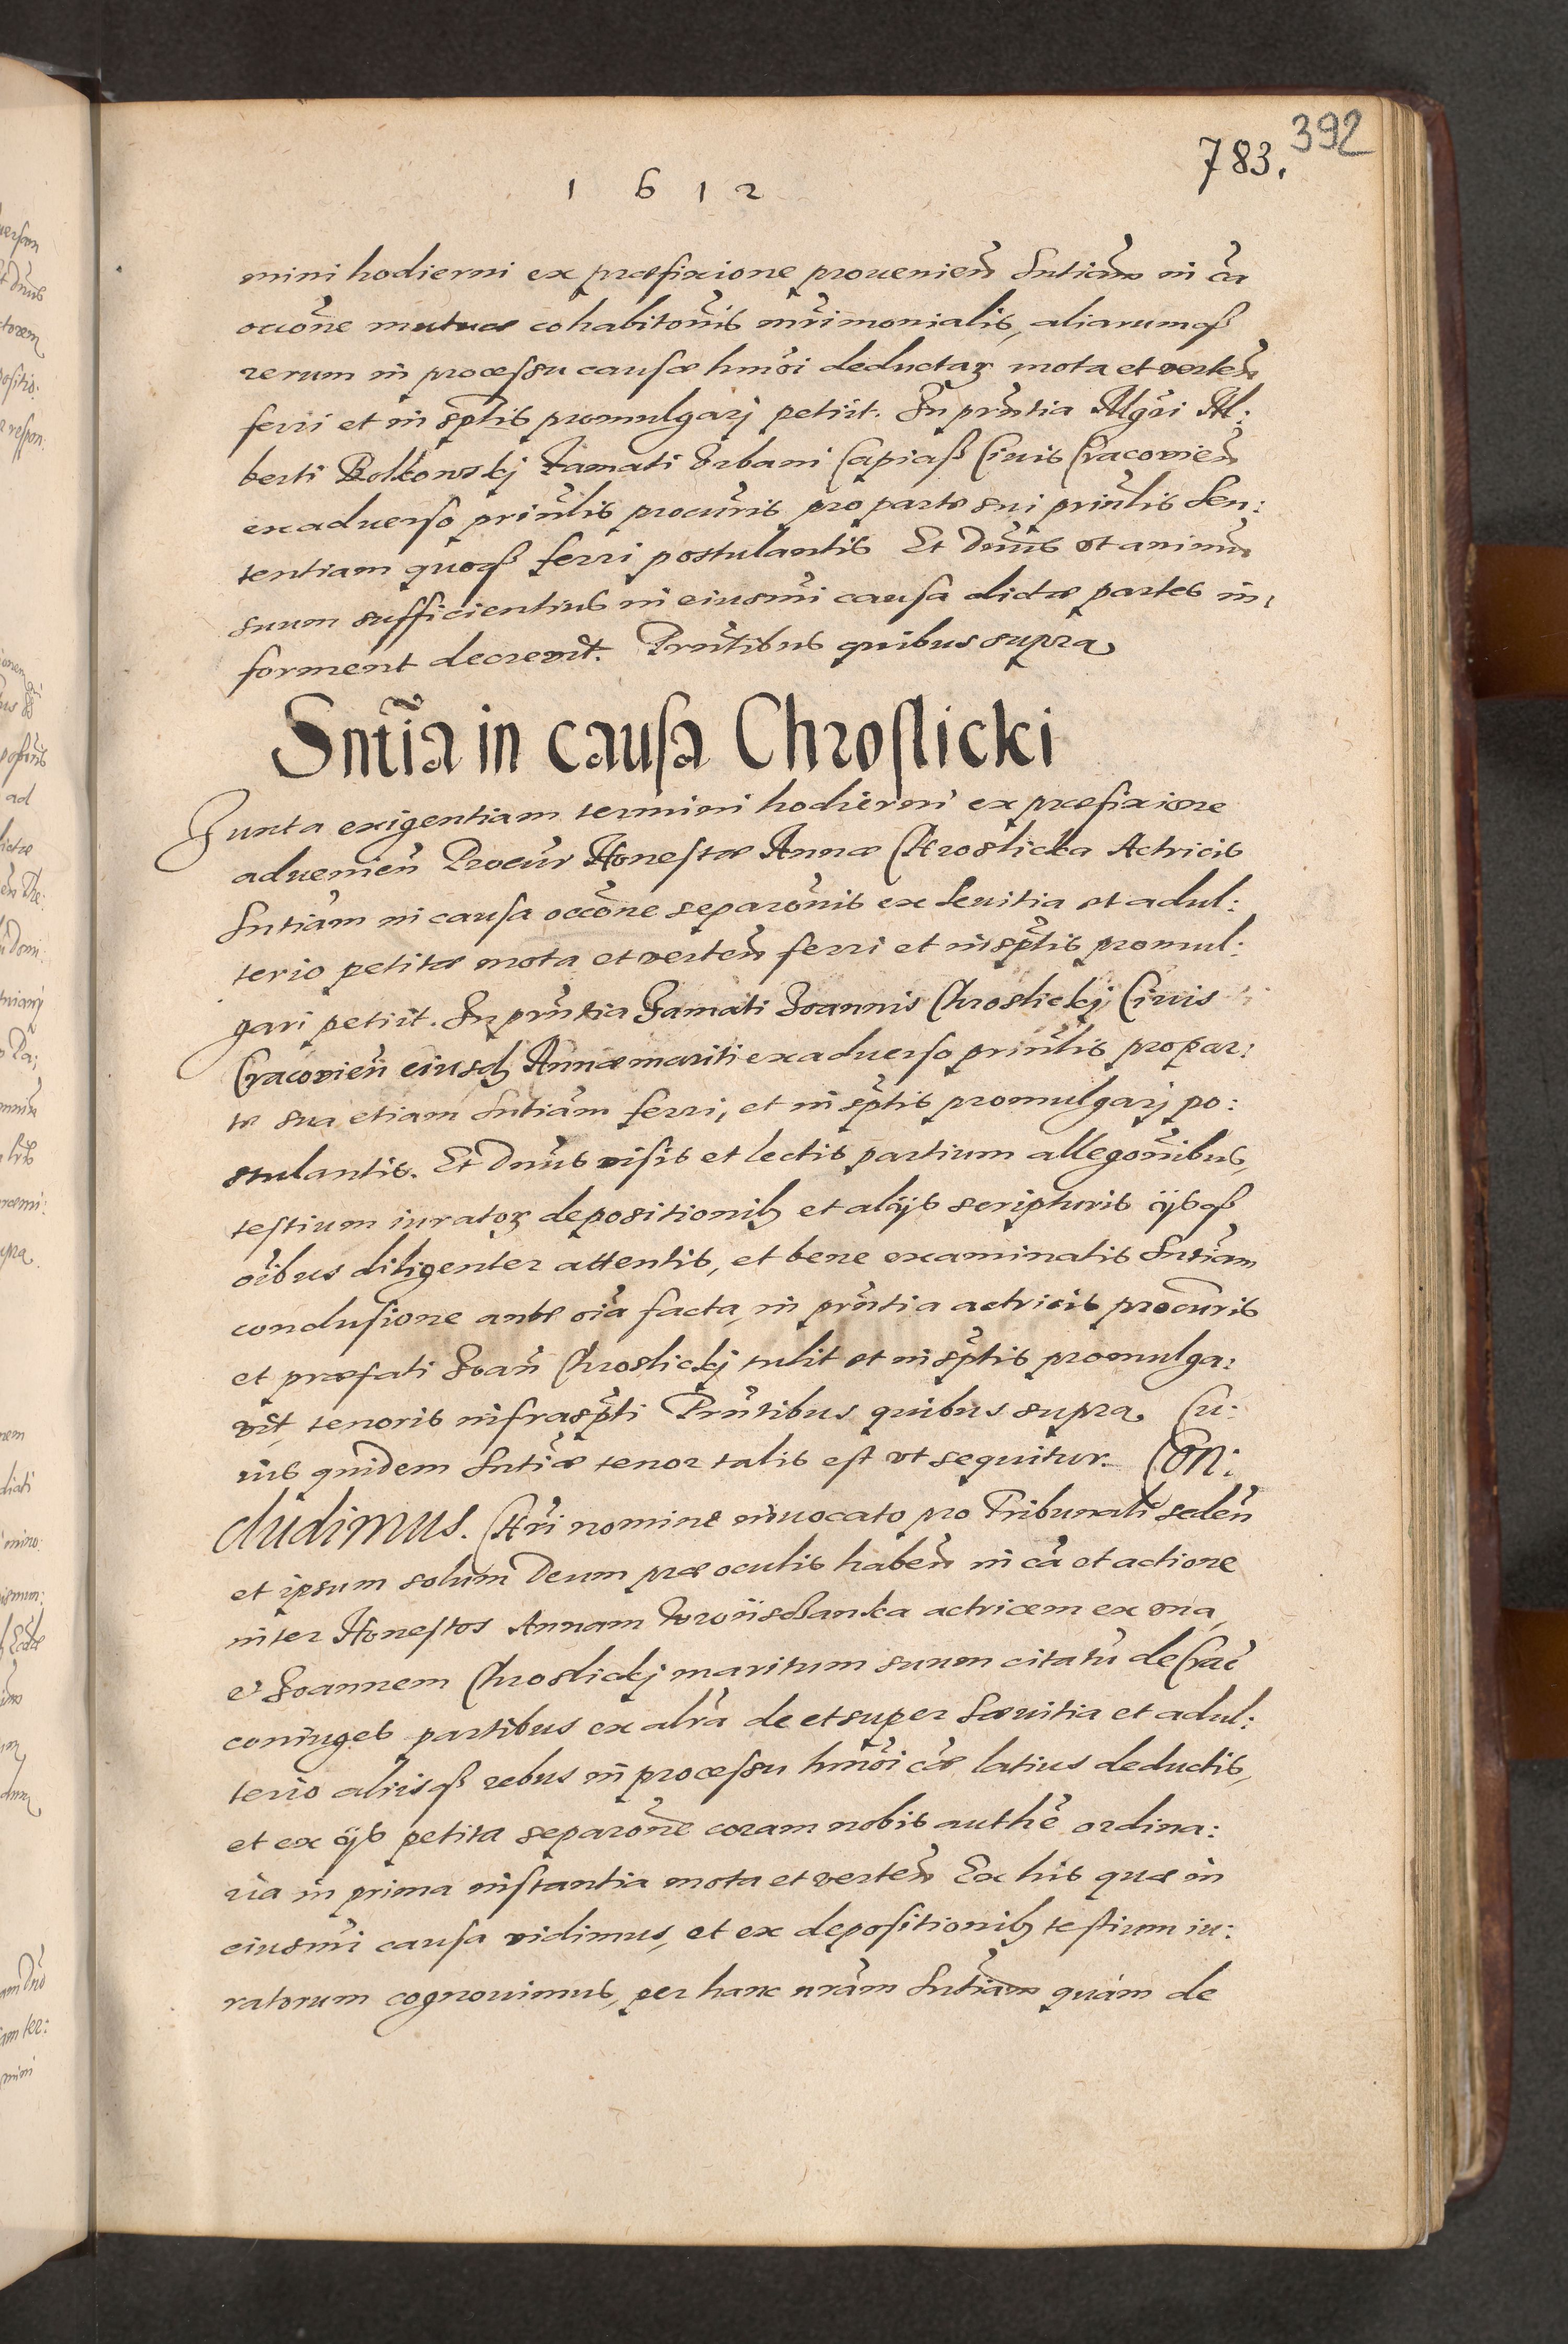 392
783.
1 6 1 2
mini hodierni ex præfixione prouenien̄ Sntiam̄ in cā
occōne mutuæ cohabitōnis mr̄imonialis, aliarumqꝫ
rerum in processu causæ hmōi deductaꝝ mota et verten̄
ferri et in sp̄tis promulgarj petijt. In prn̄tia Mgr̄i Al:
berti Bolkowskj Famati Vrbani Capiasz Ciuis Cracouien̄
ex aduerso prin̄lis procur̄is pro parte sui prin̄lis Sen:
tentiam quoqꝫ ferri postulantis Et Dnūs vt animū
suum sufficientius in eiusmōi causa dictæ partes in:
forment decreuit. Prn̄tibus quibus supra
Sntīa in causa Chroslicki
Juxta exigentiam termini hodierni ex præfixione
aduenien̄ Procur̄ Honestæ Annæ Chroslicka Actricis
Sntiam̄ in causa occōne separōnis ex Seuitia et adul:
terio petitæ mota et verten̄ ferri et in sp̄tis promul:
gari petijt. In prn̄tia Famati Joannis Chroslickj Ciuis
Cracouien̄ eiusdꝫ Annæ mariti ex aduerso prin̄lis pro par:
te sua etiam Sntiām ferri, et in sp̄tis promulgarj po:
stulantis. Et Dnūs visis et lectis partium allegōnibus,
testium iuratoꝝ depositionibꝫ et alijs scripturis ijsqꝫ
oībus diligenter attentis, et bene examinatis Sntiām
conclusione ante oīa facta, in prn̄tia actricis procur̄is
et præfati Joan̄ Chroslickj tulit et in sp̄tis promulga:
uit, tenoris infrasp̄ti Prn̄tibus quibus supra. Cu:
ius quidem Sntiǣ tenor talis est vt sequitur. Con:
cludimus. Chr̄i nomine inuocato pro Tribunali seden̄
et ipsum solum Deum præ oculis haben̄ in cā et actione
inter Honestos Annam actricem ex vna,
et Joannem Chroslickj maritum suum citatū de Crac̄
coniuges partibus ex altr̄a de et super Sæuitia et adul:
terio alijsqꝫ rebus in processu hmōi cǣ latius deductis,
et ex ijs petita separōne coram nobis authē ordina:
ria in prima instantia mota et verten̄ Ex his quæ in
eiusmōi causa vidimus, et ex depositionibꝫ testium iu:
ratorum cognouimus, per hanc nrām Sntiam̄ quàm de